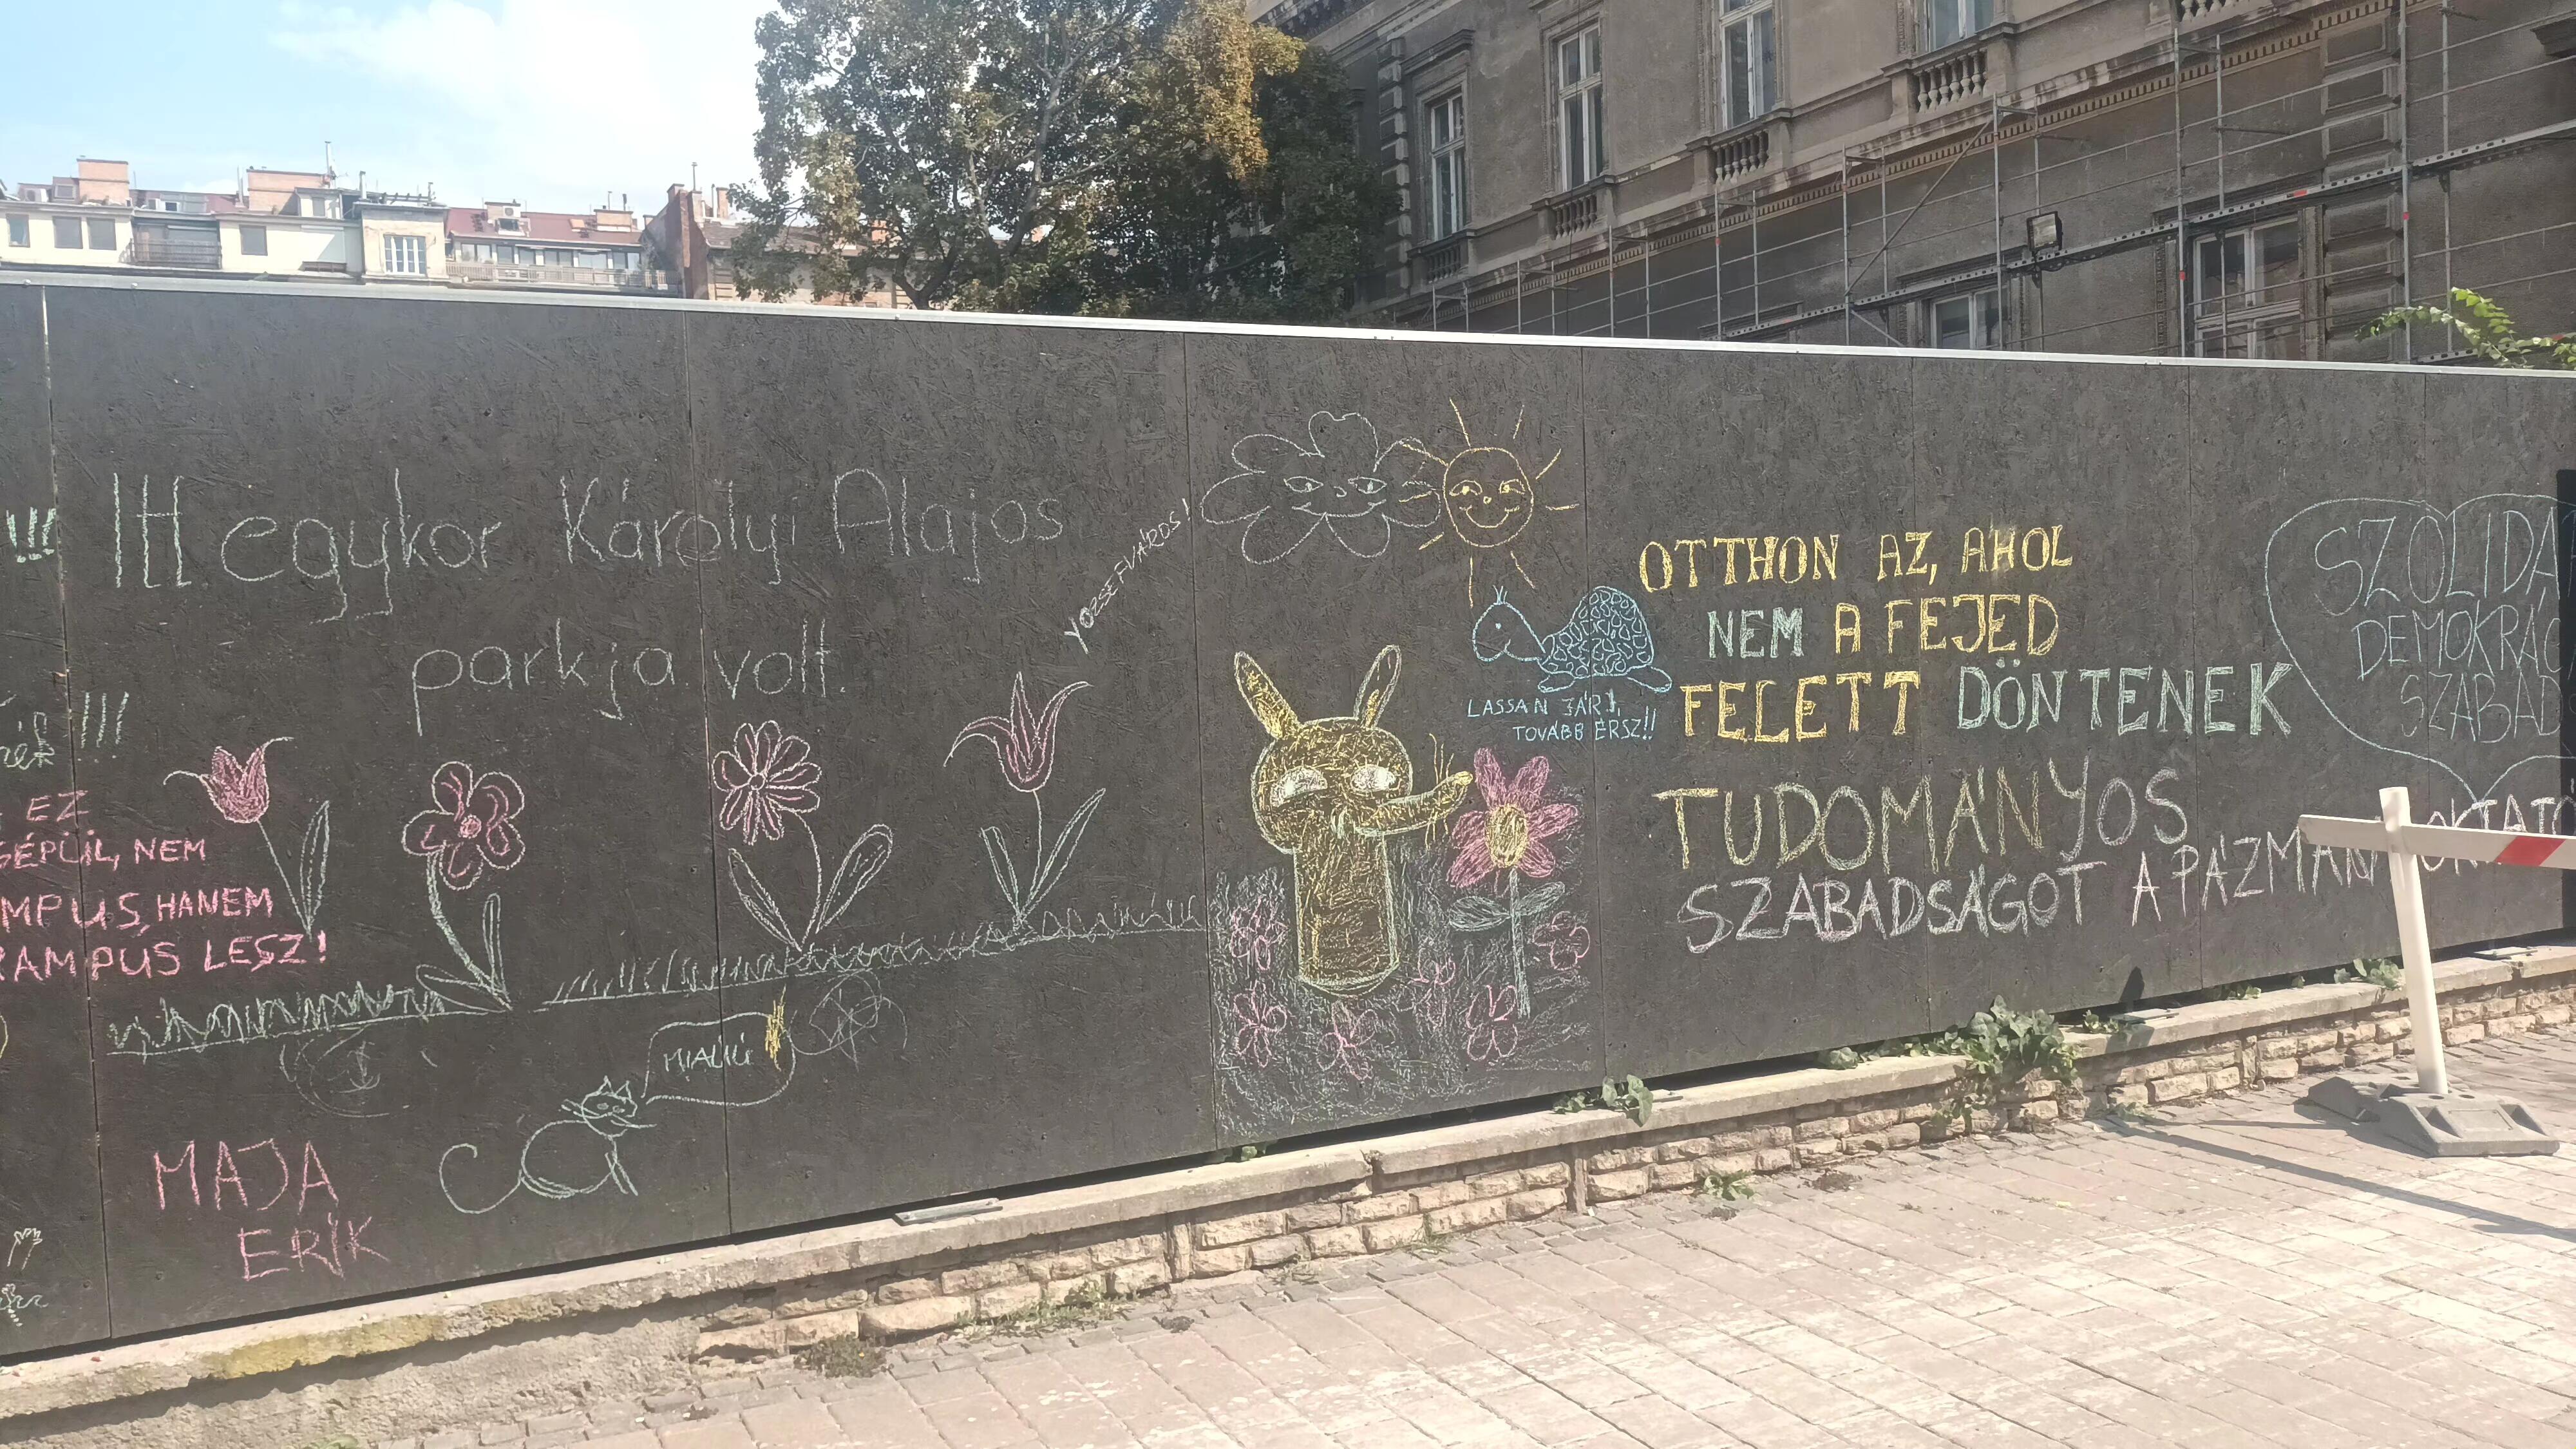 !!!
Itt egykor Károlyi Alajos
parkja volt.
YOZSEFVÁROS!
!!!
EZ
GÉPÜL, NEM
MPUS, HANEM
RAMPUS LESZ!
MIAÚÚ
MAJA
ERIK
LASSAN JÁRJ,
TOVÁBB ÉRSZ!!
OTTHON AZ, AHOL
NEM A FEJED
FELETT DÖNTENEK
TUDOMÁNYOS
SZABADSÁGOT A PÁZMÁNY
SZOLIDA
DEMOKRÁC
SZABAD